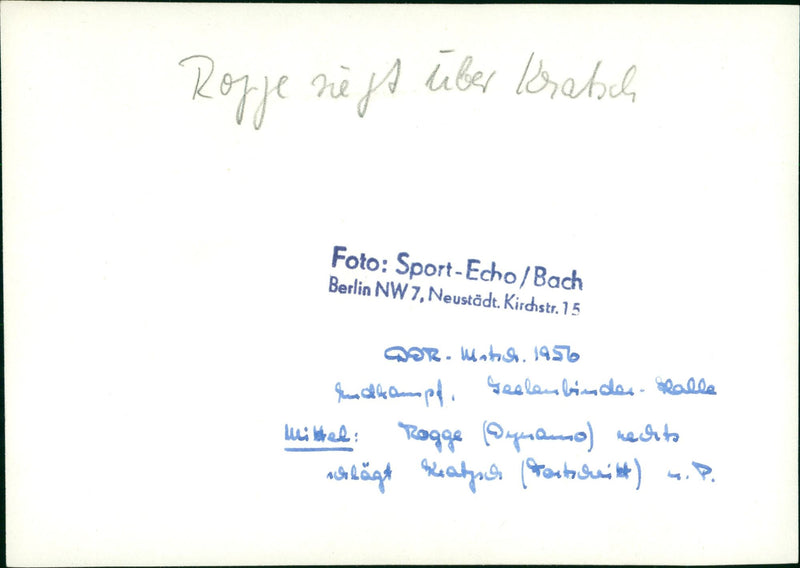 Rogge siegt über Kratsch
Foto: Sport-Echo/Bach
Berlin NW 7, Neustädt. Kirchstr. 15
DDR - Mstsch. 1956
Endkampf, Seelenbinder-Halle
Mittel: Rogge (Dynamo) rechts
schlägt Kratzsch (Fortschritt) n. P.